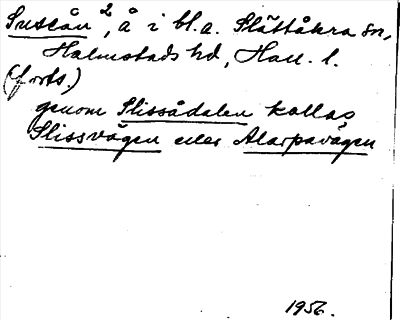 Suseån², å i bl.a. Slättåkra sn,
Halmstads hd, Hall. l.
(forts.)
genom Slissådalen kallas
Slissvägen eller Alarpavägen
1956.